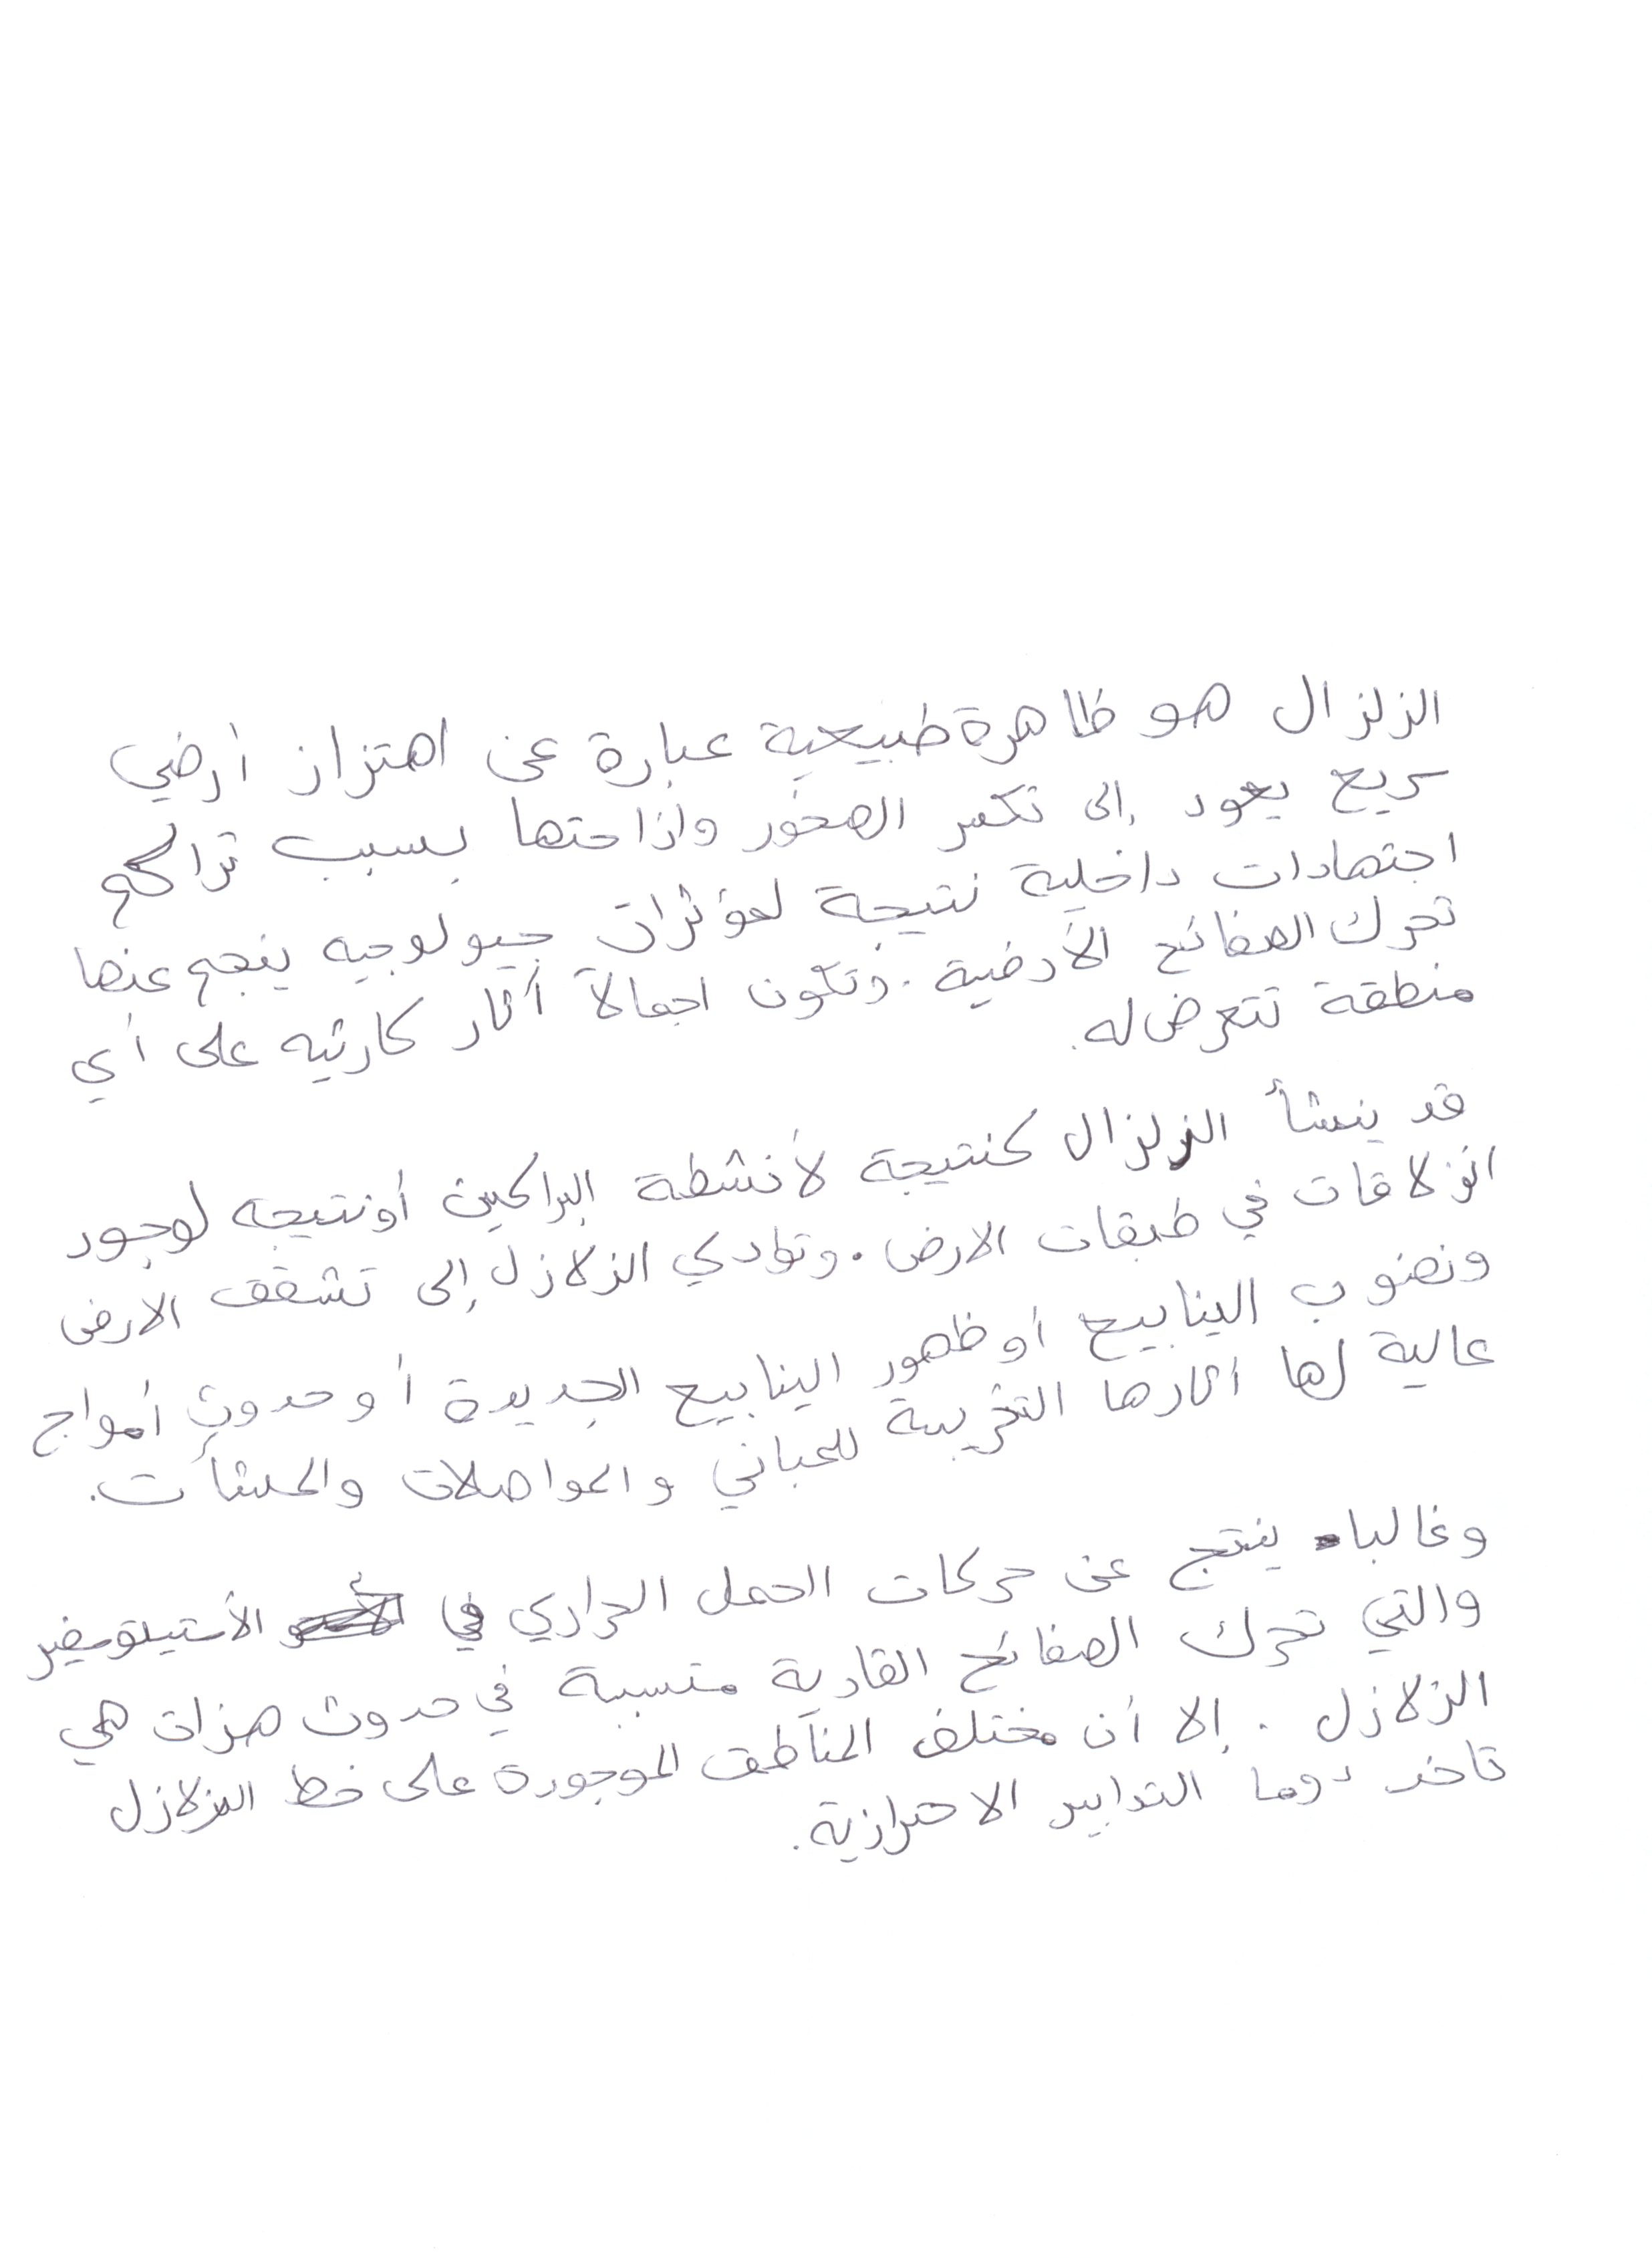 الزلزال هو ظاهرة طبيعية عبارة عن اهتزاز أرضي
سريع يعود إلى تكسر الصخور وازاحتها بسبب تراكم
اجتهادات داخلية نتيجة لمؤثرات جيولوجيه ينجم عنها
تحرك الصفائح الأرضية. وتكون اجمالاً آثار كارثيه على أي
منطقة تتعرض له.
قد ينشأ الزلزال كنتيجة لأنشطة البراكين أو نتيجه لوجود
انزلاقات في طبقات الارض. وتؤدي الزلازل إلى تشقق الارض
ونضوب الينابيع أو ظهور الينابيع الجديدة أو حدوث أمواج
عالية لها أثارها التخريبية للمباني والمواصلات والمنشآت.
وغالبا ينتج عن حركات الحمل الحراري في الأستينوسفير
والتي تحرك الصفائح القارية متسببة في حدوث هزات هي
الزلازل. إلا أن مختلف المناطق الموجودة على خط الزلازل
تاخذ دوما التدابير الاحترازية.